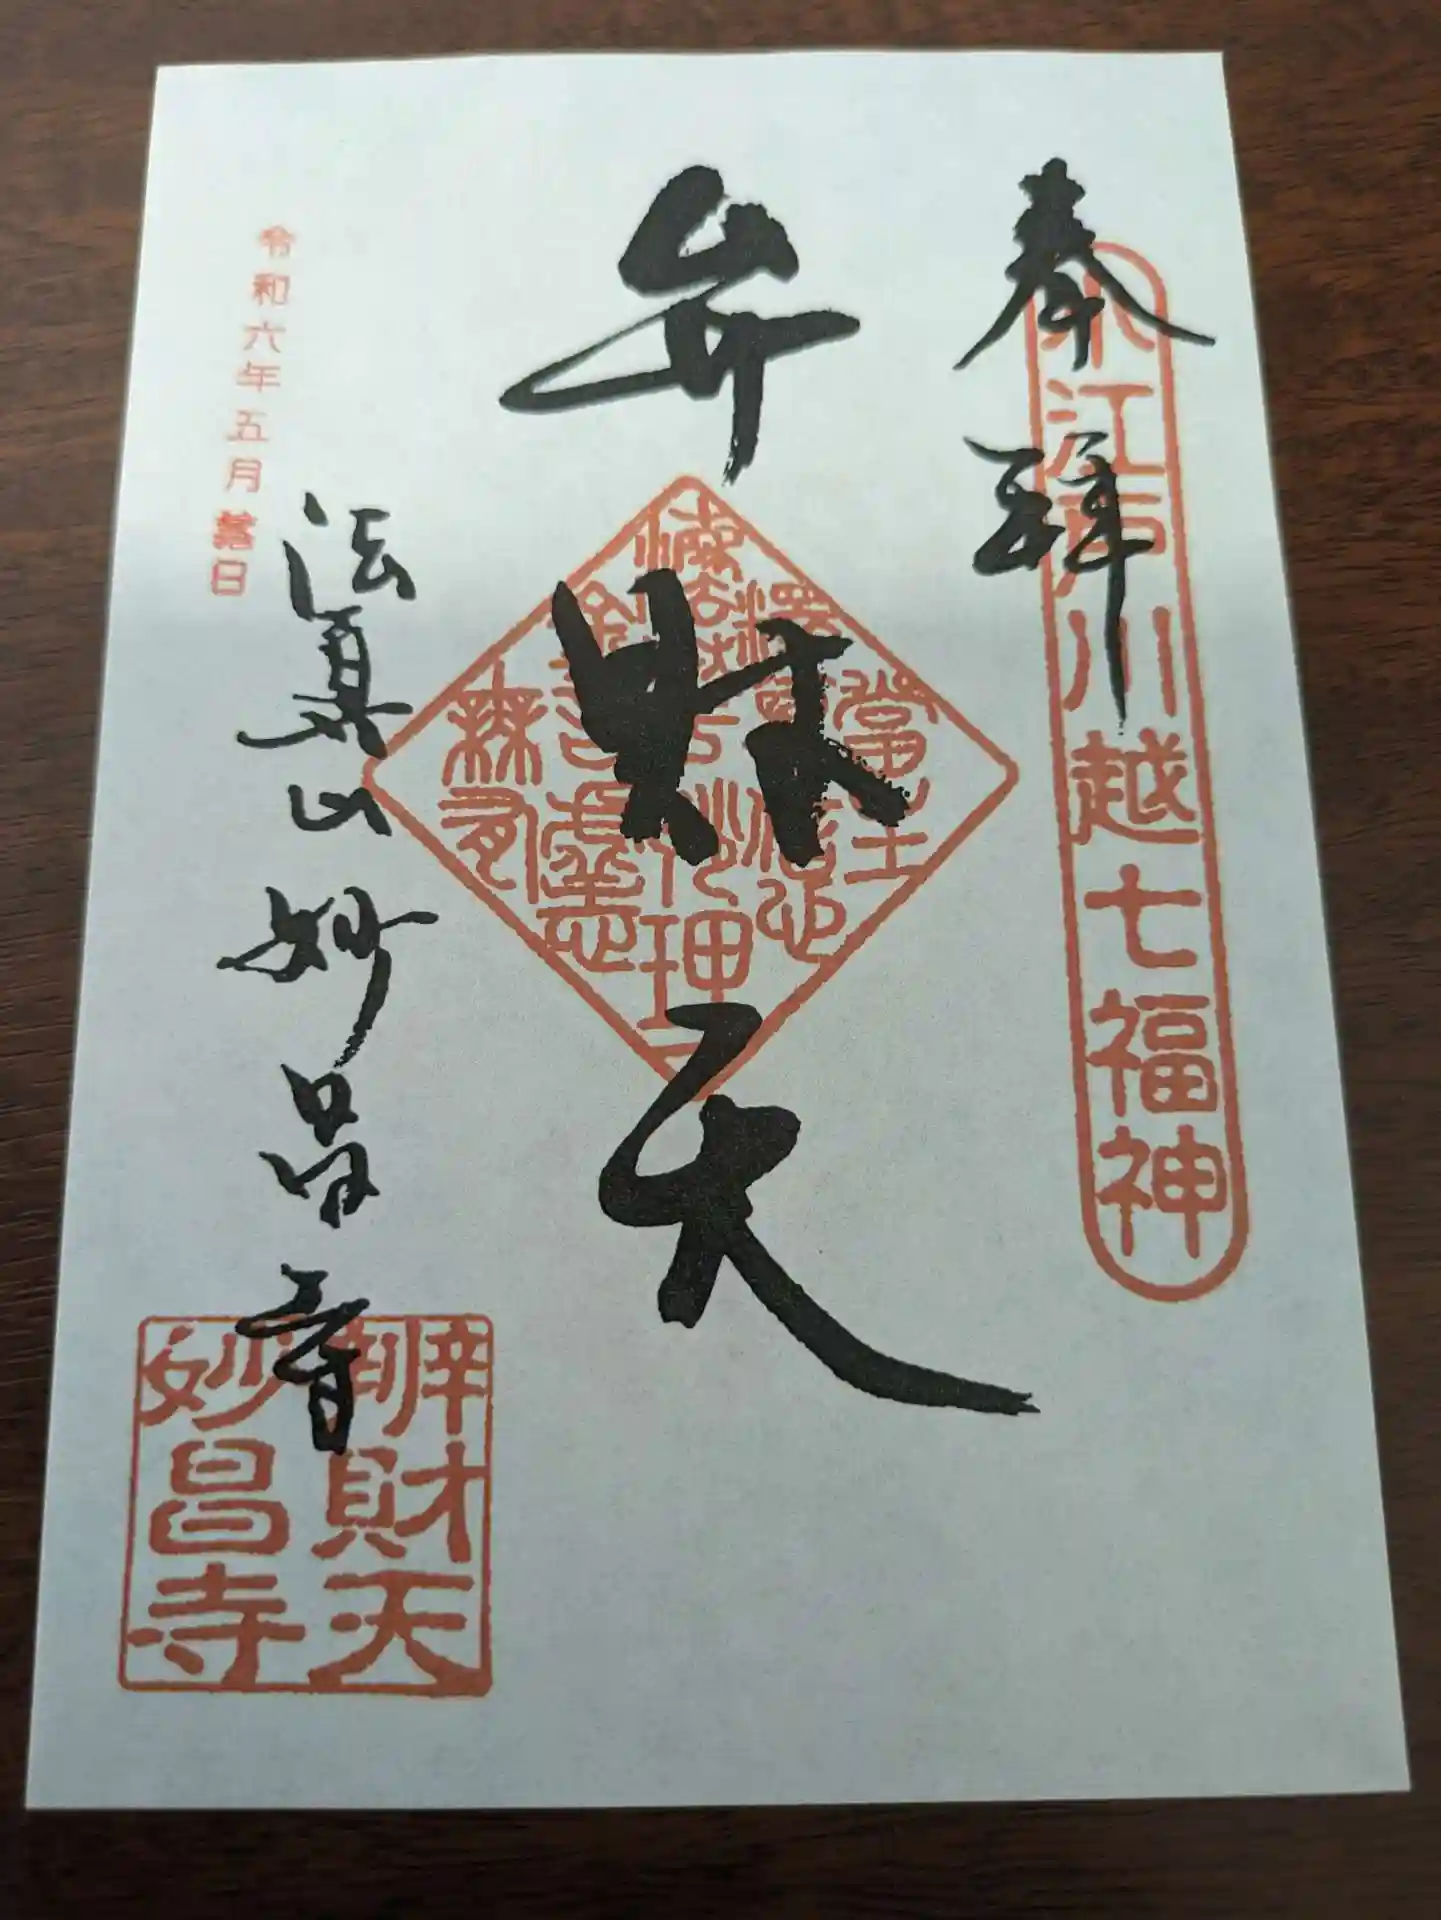 奉拝
小江戸川越七福神
弁財天
法眞山 妙昌寺
令和六年五月吉日
辨財天
妙昌寺